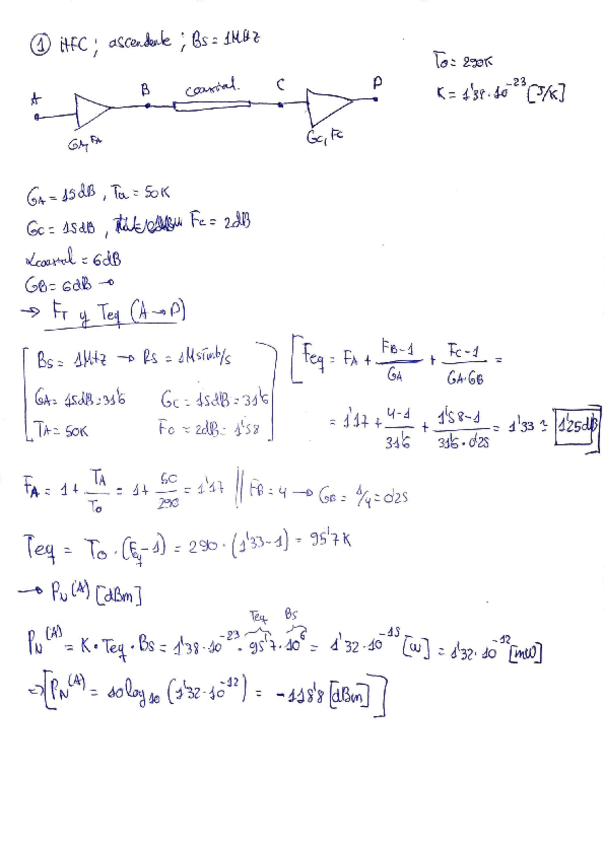 ① HFC ; ascendente ; Bs = 1MHz
To = 290K
K = 1'38·10^-23 [J/K]
A B coaxial. C D
GA, FA Gc, Fc
GA = 15dB, Ta = 50K
Gc = 15dB, Fc = 2dB
αcoaxial = 6dB
GB = 6dB →
→ FT y Teq (A→D)
Bs = 1MHz → Rs = 1Msimb/s
GA = 15dB = 31'6 Gc = 15dB = 31'6
TA = 50K Fc = 2dB = 1'58
Feq = FA + (FB-1)/GA + (Fc-1)/(GA·GB) =
= 1'17 + (4-1)/31'6 + (1'58-1)/(31'6·0'25) = 1'33 ≃ 1'25dB
FA = 1 + TA/To = 1 + 50/290 = 1'17 // FB = 4 → GB = 1/4 = 0'25
Teq = To·(Feq-1) = 290·(1'33-1) = 95'7K
→ PN^(A) [dBm]
Teq Bs
PN^(A) = K·Teq·Bs = 1'38·10^-23·95'7·10^6 = 1'32·10^-15 [W] = 1'32·10^-12 [mW]
⇒ [PN^(A) = 10log10 (1'32·10^-12) = -118'8 [dBm]]